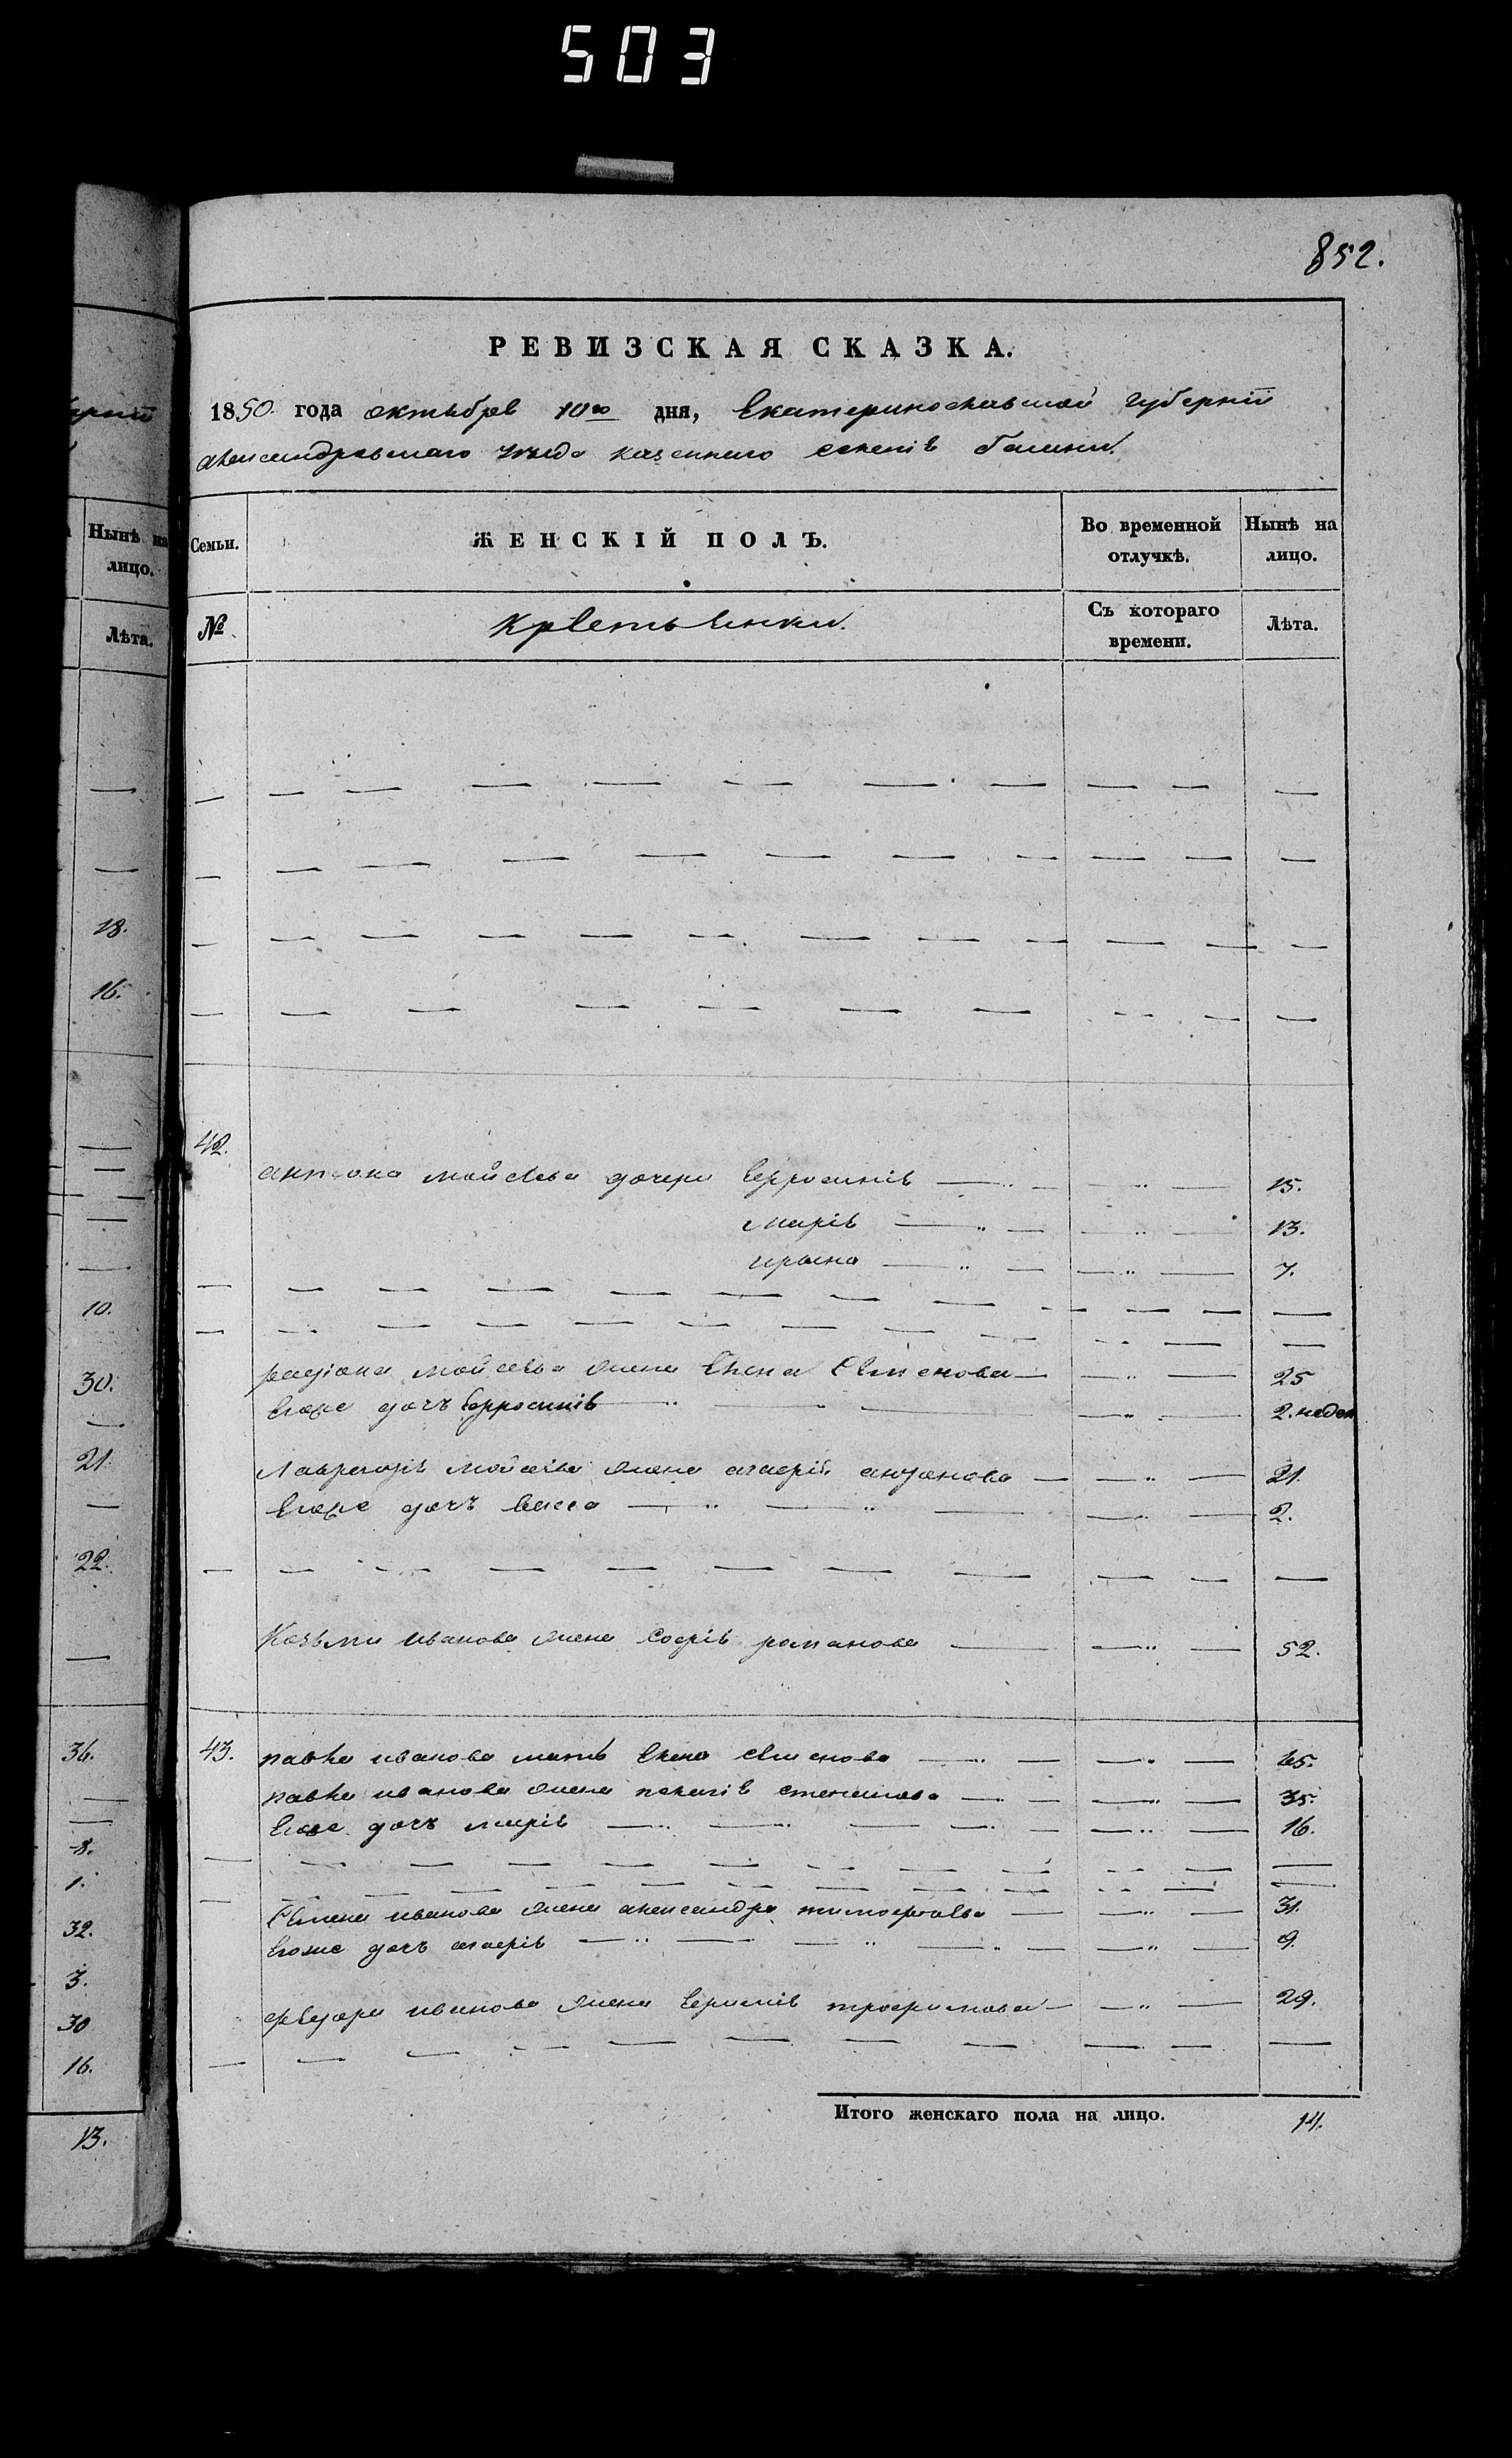 503
852.
РЕВИЗСКАЯ СКАЗКА.
1850 года октября 10го дня, Екатеринославской губернии
Александровскаго уезда казеннаго селения
Семьи. ЖЕНСКІЙ ПОЛЪ. Во временной отлучкѣ. Нынѣ на лицо.
№ крестьянки. Съ котораго времени. Лѣта.
42.
антона мойсеева дочери Ефросиния 15.
мария 13.
ирына 7.
радиона мойсеева жена Елена Семенова 25
Егоже дочь Ефросиния 2. недел
Лаврентия мойсеева жена агафия антонова 21.
Егоже дочь васса 2.
Козьмы иванова жена София романова 52.
43. павла иванова мать Елена семенова 65.
павла иванова жена пелагия степанова 35.
Егоже дочь мария 16.
Семена иванова жена александра тимофеева 31.
Егоже дочь агафия 9.
федора иванова жена Ефимия трофимова 29.
Итого женскаго пола на лицо. 14.
Нынѣ на лицо.
Лѣта.
18.
16.
10.
30.
21.
22.
36.
8.
1.
32.
3.
30
16.
13.